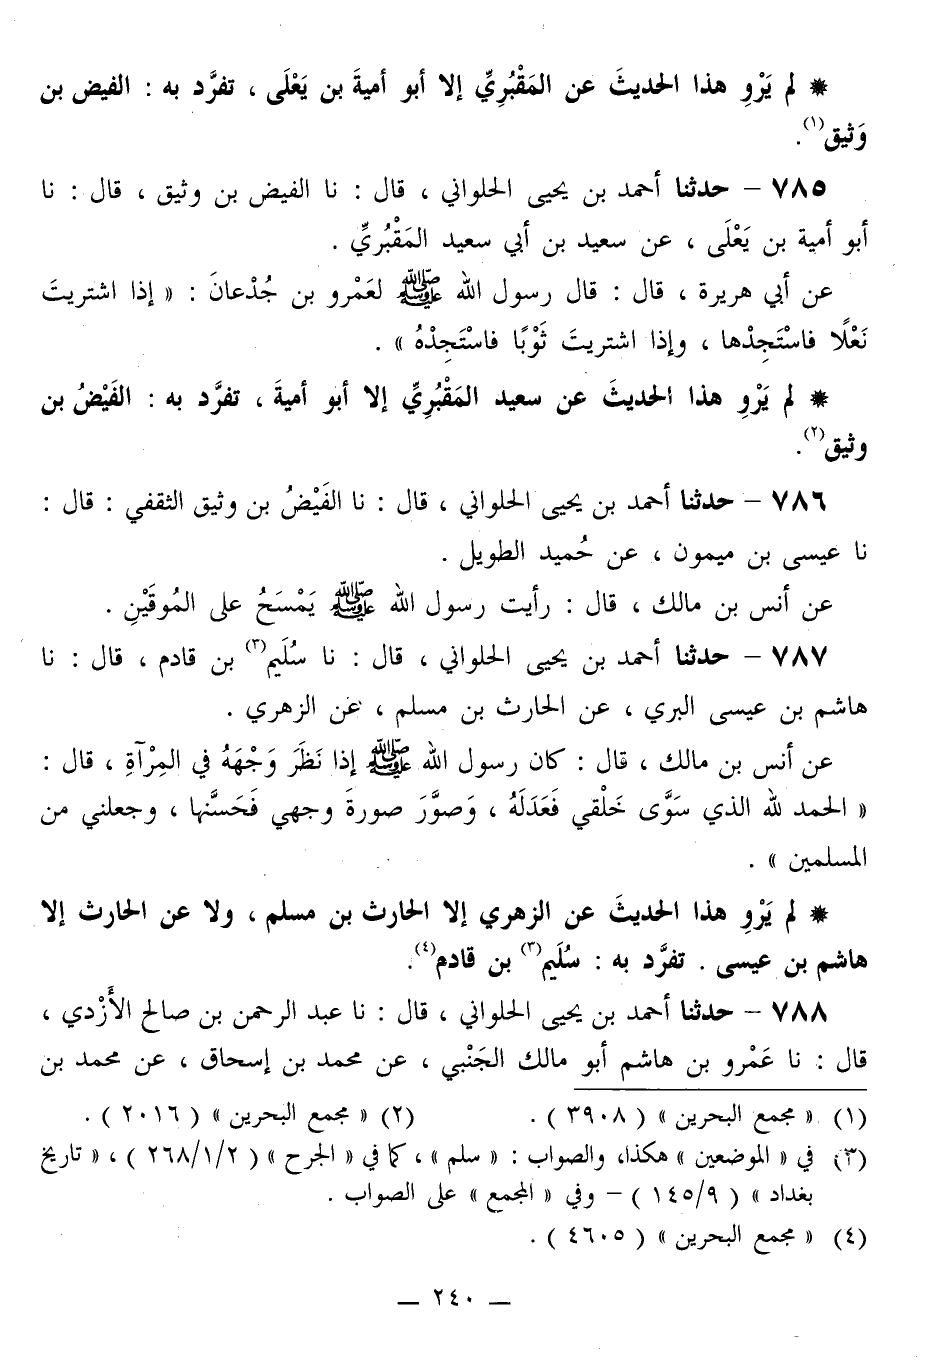 * لم يَرْوِ هذا الحديثَ عن المَقْبُرِيِّ إلا أبو أميةَ بن يَعْلَى ، تفرَّد به : الفيض بن
وَثيق(١).
٧٨٥ – حدثنا أحمد بن يحيى الحلواني ، قال : نا الفيض بن وثيق ، قال : نا
أبو أمية بن يَعْلَى ، عن سعيد بن أبي سعيد المَقْبُريِّ .
عن أبي هريرة ، قال : قال رسول الله ﷺ لعَمْرو بن جُدْعانَ : « إذا اشتريتَ
نَعْلًا فاسْتَجِدْها ، وإذا اشتريتَ ثَوْبًا فاسْتَجِدْهُ » .
* لم يَرْوِ هذا الحديثَ عن سعيد المَقْبُرِيِّ إلا أبو أميةَ ، تفرَّد به : الفَيْضُ بن
وثيق(٢).
٧٨٦ – حدثنا أحمد بن يحيى الحلواني ، قال : نا الفَيْضُ بن وثيق الثقفي : قال :
نا عيسى بن ميمون ، عن حُميد الطويل .
عن أنس بن مالك ، قال : رأيت رسول الله ﷺ يَمْسَحُ على المُوقَيْنِ .
٧٨٧ – حدثنا أحمد بن يحيى الحلواني ، قال : نا سُلَيم(٣) بن قادم ، قال : نا
هاشم بن عيسى البري ، عن الحارث بن مسلم ، عن الزهري .
عن أنس بن مالك ، قال : كان رسول الله ﷺ إذا نَظَرَ وَجْهَهُ في المِرْآةِ ، قال :
« الحمد لله الذي سَوَّى خَلْقي فَعَدَلَهُ ، وَصوَّرَ صورةَ وجهي فَحَسَّنها ، وجعلني من
المسلمين » .
* لم يَرْوِ هذا الحديثَ عن الزهري إلا الحارث بن مسلم ، ولا عن الحارث إلا
هاشم بن عيسى . تفرَّد به : سُلَيم(٣) بن قادم(٤).
٧٨٨ – حدثنا أحمد بن يحيى الحلواني ، قال : نا عبد الرحمن بن صالح الأَزْدي ،
قال : نا عَمْرو بن هاشم أبو مالك الجَنْبي ، عن محمد بن إسحاق ، عن محمد بن
(١) « مجمع البحرين » ( ٣٩٠٨ ) . (٢) « مجمع البحرين » ( ٢٠١٦ ) .
(٣) في « الموضعين » هكذا، والصواب : « سلم » ، كما في « الجرح » ( ٢٦٨/١/٢ ) ، « تاريخ
بغداد » ( ١٤٥/٩ ) – وفي « المجمع » على الصواب .
(٤) « مجمع البحرين » ( ٤٦٠٥ ) .
– ٢٤٠ –